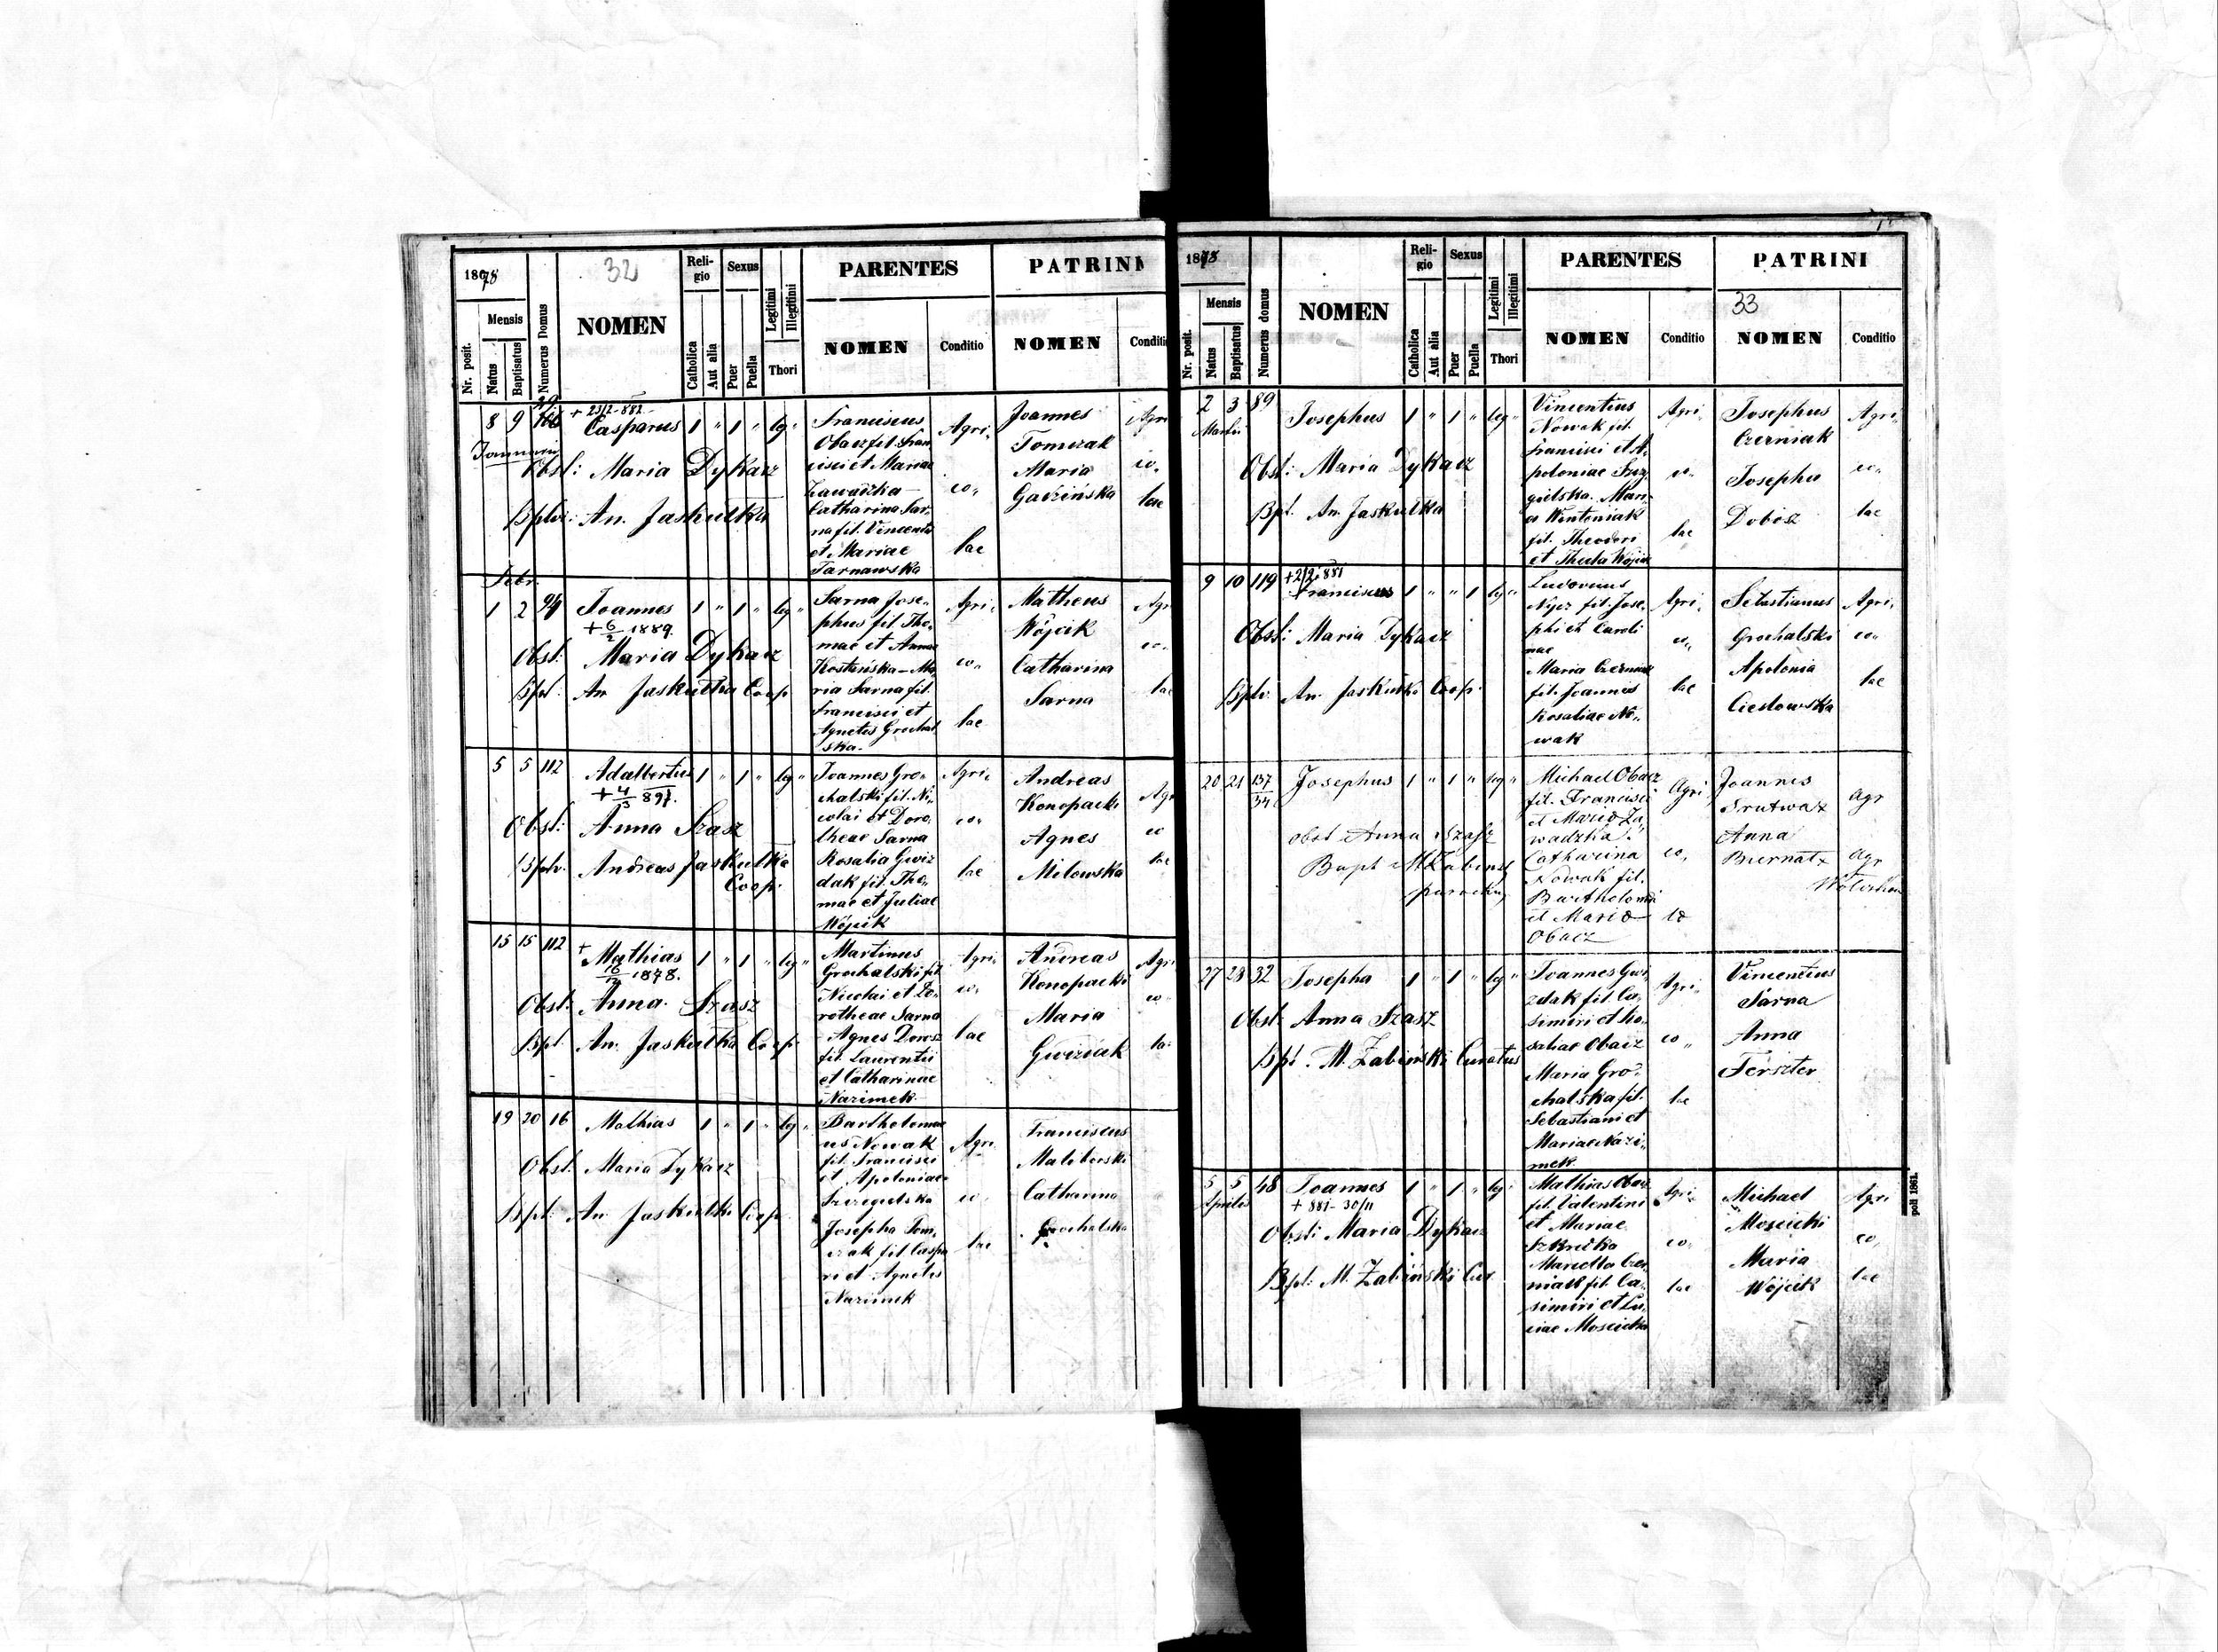 1878
32
Religio
Sexus
Legitimi
Illegitimi
PARENTES
PATRINI
Nr. posit.
Mensis
Natus
Baptisatus
Numerus Domus
NOMEN
Catholica
Aut alia
Puer
Puella
Thori
NOMEN
Conditio
NOMEN
Conditio
8 9 + 23/2 882
Januarii
Casparus 1 " 1 " leg "
Obst: Maria Dykacz
Bptv: An. Jaskulka
Franciscus
Obacz fil. Fran
cisci et Mariae
Zawadzka –
Catharina Sar,
na fil. Vincentii
et Mariae
Tarnawska
Agri,
co,
lae
Joannes
Tomczak
Maria
Gadzińska
Agri
co,
lae
Febr.
1 2 94 Joannes 1 " 1 " leg "
+ 6/2 1889.
Obst: Maria Dykacz
Bptv. An Jaskulka Coop
Sarna Jose,
phus fil Tho,
mae et Annae
Kostańska – Ma,
ria Sarna fil.
Francisci et
Agnetis Grochal
ska –
Agri,
co,
lae
Matheus
Wójcik
Catharina
Sarna
Agri
co,
lae
5 5 112 Adalbertus 1 " 1 " leg "
+ 4/3 897.
Obst: Anna Szasz
Bptv. Andreas Jaskulka
Coop.
Joannes Gro,
chalski fil. Ni,
colai et Doro,
theae Sarna
Rosalia Gwiz
dak fil. Tho,
mae et Juliae
Wójcik
Agri,
co,
lae
Andreas
Konopacki
Agnes
Milowska
Agr
co
lae
15 15 112 + Mathias 1 " 1 " leg "
16/12 1878.
Obst: Anna Szasz
Bpt. An. Jaskulka Coop
Martinus
Grochalski fil
Nicolai et Do,
rotheae Sarna
Agnes Dorosz
fil. Laurentii
et Catharinae
Nazimek
Agri,
co,
lae
Andreas
Konopacki
Maria
Gwizdak
Agri
co,
lae
19 20 16 Mathias 1 " 1 " leg "
Obst: Maria Dykacz
Bpt: An Jaskulka Coop.
Bartholomae
us Nowak
fil. Francisci
et Apoloniae
Szczegielska
Josepha Tom,
czak fil Caspa
ri et Agnetis
Nazimek
Agri
co,
lae
Franciscus
Maliborski
Catharina
Grochalska
1878
Religio
Sexus
Legitimi
Illegitimi
PARENTES
PATRINI
33
Nr. posit.
Mensis
Natus
Baptisatus
Numerus domus
NOMEN
Catholica
Aut alia
Puer
Puella
Thori
NOMEN
Conditio
NOMEN
Conditio
2 3 89 Josephus 1 " 1 " leg "
Martii
Obst: Maria Dykacz
Bpt. An. Jaskulka
Vincentius
Nowak fil.
Francisci et A,
poloniae Szcze
gielska. Mari
a Wintoniak
fil. Theodori
et Thecla Wójcik
Agri,
co,
lae
Josephus
Czerniak
Josepha
Dobosz
Agri,
co,
lae
9 10 119 + 2/2 881
Franciscus 1 " " 1 leg "
Obst: Maria Dykacz
Bptv. An. Jaskulka Coop.
Ludovicus
Nycz fil. Jose,
phi et Caroli
nae
Maria Czerniak
fil. Joannes
Rosaliae No,
wak
Agri,
co,
lae
Sebastianus
Grochalski
Apolonia
Cieslowska
Agri,
co,
lae
20 21 137/34 Josephus 1 " 1 " leg "
obst Anna Szasz
Bapt M. Zabinski
parochus
Michael Obacz
fil. Francisci
et Maria Za,
wadzka
Catharina
Nowak fil.
Bartholomei
et Maria
Obacz
Agri
co,
Joannes
Srutwa x
Anna
Biernat x
Agr
Agr
27 28 32 Josepha 1 " 1 " leg "
Obst: Anna Szasz
Bpt. M. Zabiński Curatus
Joannes Gwi,
zdak fil. Ca,
simiri et Ro,
saliae Obacz
Maria Gro,
chalska fil.
Sebastiani et
Mariae Nazi,
mek
Agri,
co,
lae
Vincentius
Sarna
Anna
Ferszter
5 5 48 Joannes 1 " 1 " leg "
Aprilis
+ 881 - 30/11
Obst: Maria Dykacz
Bpt: M. Zabiński Cur
Mathias Obacz
fil. Valentini
et Mariae
Marcella Czer,
niak fil. Ca,
simiri et Lu,
ciae Moscicka
Agri,
co,
lae
Michael
Moscicki
Maria
Wójcik
Agri
co,
lae
poli 1861.